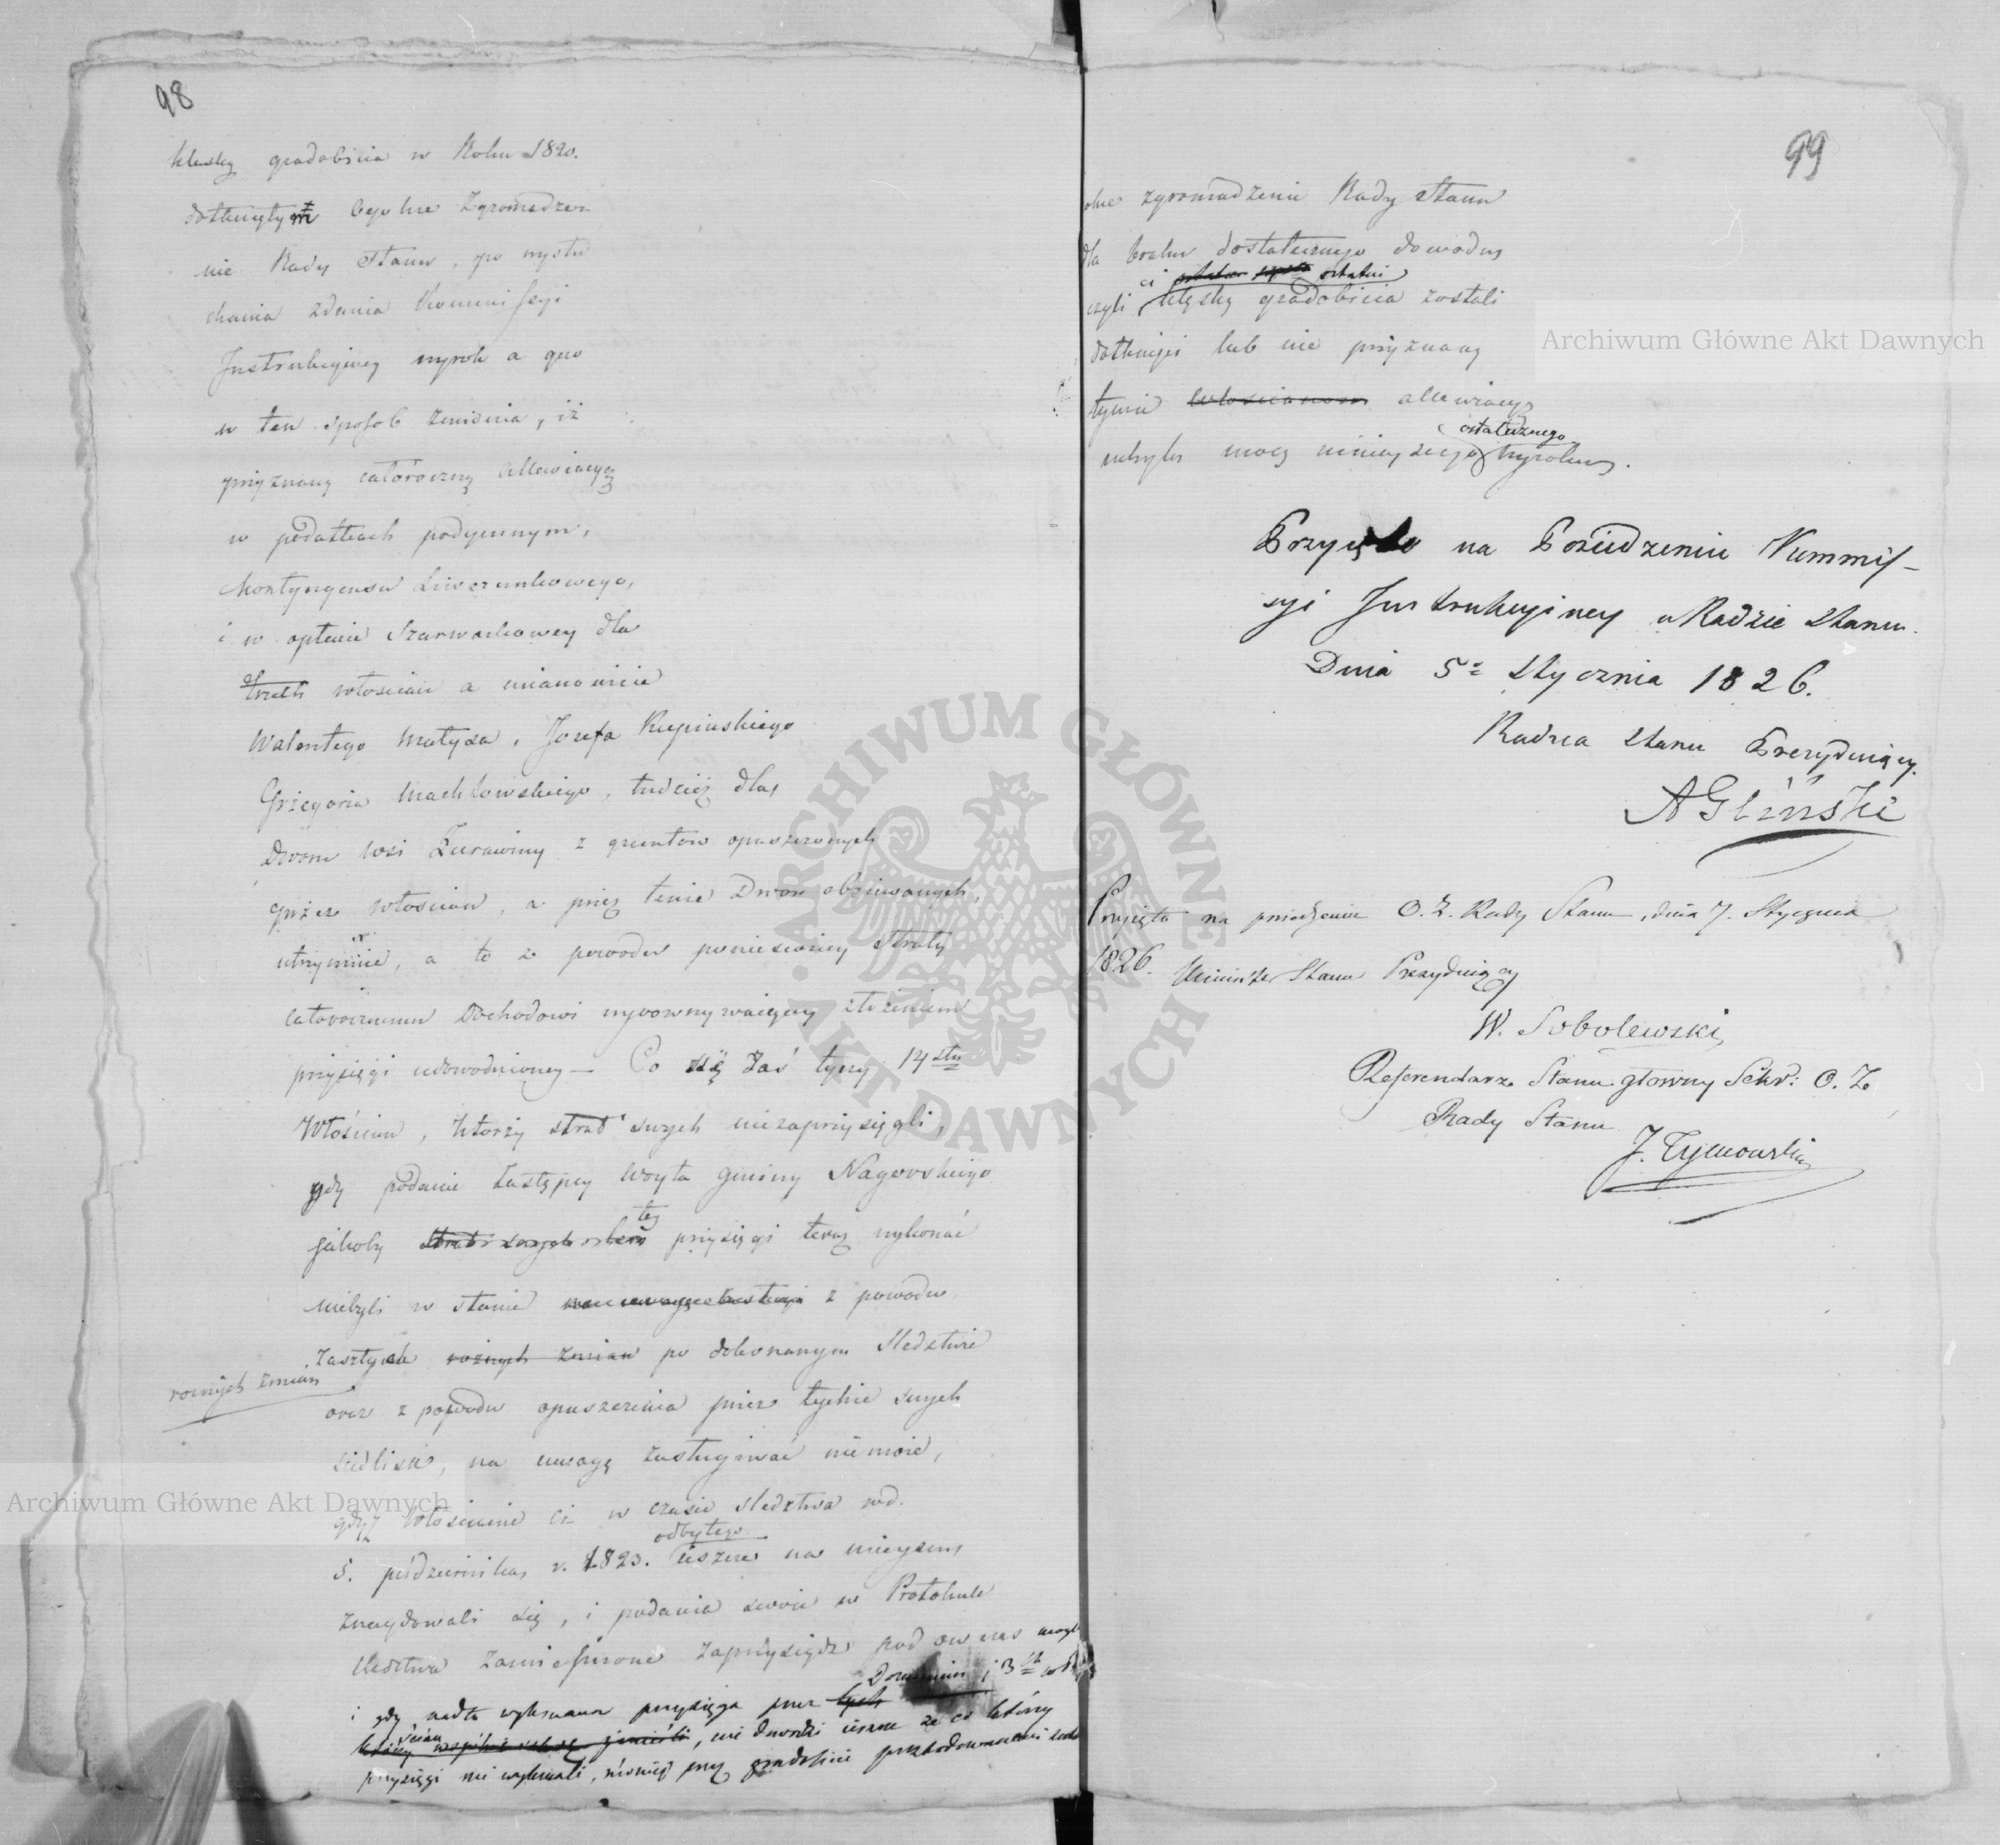 98
klęską gradobicia w Roku 1820.
dotkniętym Ogolne Zgromadze-
nie Rady Stanu, po wysłu-
chaniu zdania Kommissyi
Instrukcyiney wyrok a quo
w ten sposob zmienia, iż
przyznaną całoroczną allewiacyą
w podatkach podymnym,
Kontyngensu Liwerunkowego,
i w opłacie Szarwarkowey dla
trzech włościan a mianowicie
Walentego Matysa, Jozefa Kępinskiego
Grzegorza Machlowskiego, tudzież dla
Dworu wsi Żurawiny z gruntow opuszczonych
przez włościan, a przez tenże Dwor obsiewanych,
utrzymuie, a to z powodu poniesioney straty
całorocznemu dochodowi wyrownywaiącey złożeniem
przysięgi udowodnioney – Co się zaś tyczy 14stu
Włościan, którzy strat swych niezaprzysięgli,
gdy podanie Zastępcy Woyta gminy Nagorskiego
jakoby tey przysięgi teraz wykonać
niebyli w stanie z powodu
zaszłych rożnych zmian po dokonanym śledztwie
rożnych zmian
oraz z powodu opuszczenia przez tychże swych
siedlisk, na uwagę zasługiwać nie może,
gdyż Włościanie ci w czasie śledztwa w d.
odbytego
5. października r. 1823. ieszcze na mieyscu
znaydowali się, i podania swoie w Protokule
śledztwa zamieszczone zaprzysiądz podowczas mogli
Dominium i 3ch wło
i gdy nadto wykonana przysięga przez tych
ścian, nie dowodzi ieszcze że ci którzy
przysięgi nie wykonali, rownież przy gradobiciu poszkodowanemi zosta
99
olne zgromadzenie Rady Stanu
dla braku dostatecznego dowodu
ci ostatni
czyli klęską gradobicia zostali
dotknięci lub nie przyznaną
tymże włościanom allewiacyą
ostatecznego
uchyla mocą ninieyszego Wyroku.
Przyięto na Posiedzeniu Kommis-
syi Instrukcyiney w Radzie Stanu.
Dnia 5o Stycznia 1826.
Radca Stanu Prezyduiący.
A Gliński
Przyięto na posiedzeniu O. Z. Rady Stanu, dnia 7. Stycznia
1826. Minister Stanu Prezyduiący
W. Sobolewski
Referendarz Stanu główny Sekr: O. Z
Rady Stanu
J. Tymowski
Archiwum Główne Akt Dawnych
Archiwum Główne Akt Dawnych
ARCHIWUM GŁÓWNE AKT DAWNYCH